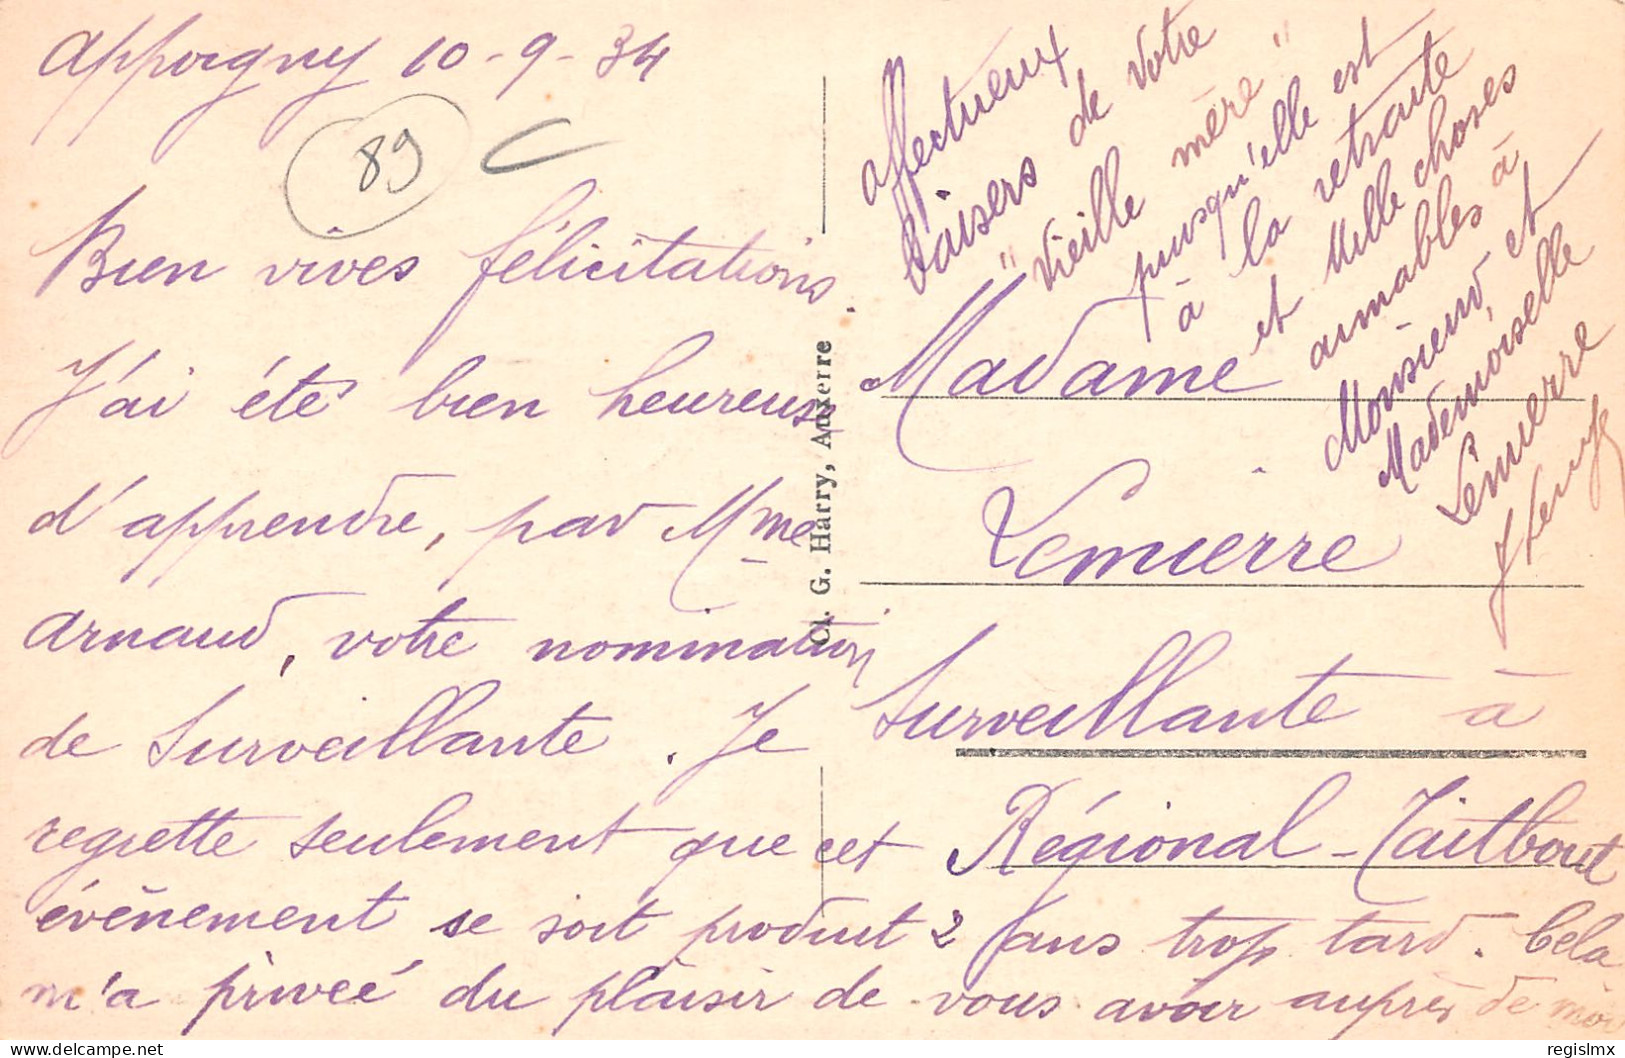 Appoigny 10-9-34
89
Bien vives félicitations.
J'ai été bien heureuse
d'apprendre, par Mme
Arnaud, votre nomination
de Surveillante. Je
regrette seulement que cet
évênement se soit produit 2 ans trop tard. Cela
m'a privée du plaisir de vous avoir auprès de moi
Affectueux
baisers de votre
"Vieille mère"
puisqu'elle est
à la retraite
et mille choses
aimables à
Monsieur, et
Mademoiselle
Lemierre
Madame
Lemierre
Surveillante à
Régional-Taitbout
Cl. G. Harry, Auxerre
delcampe.net
regislmx